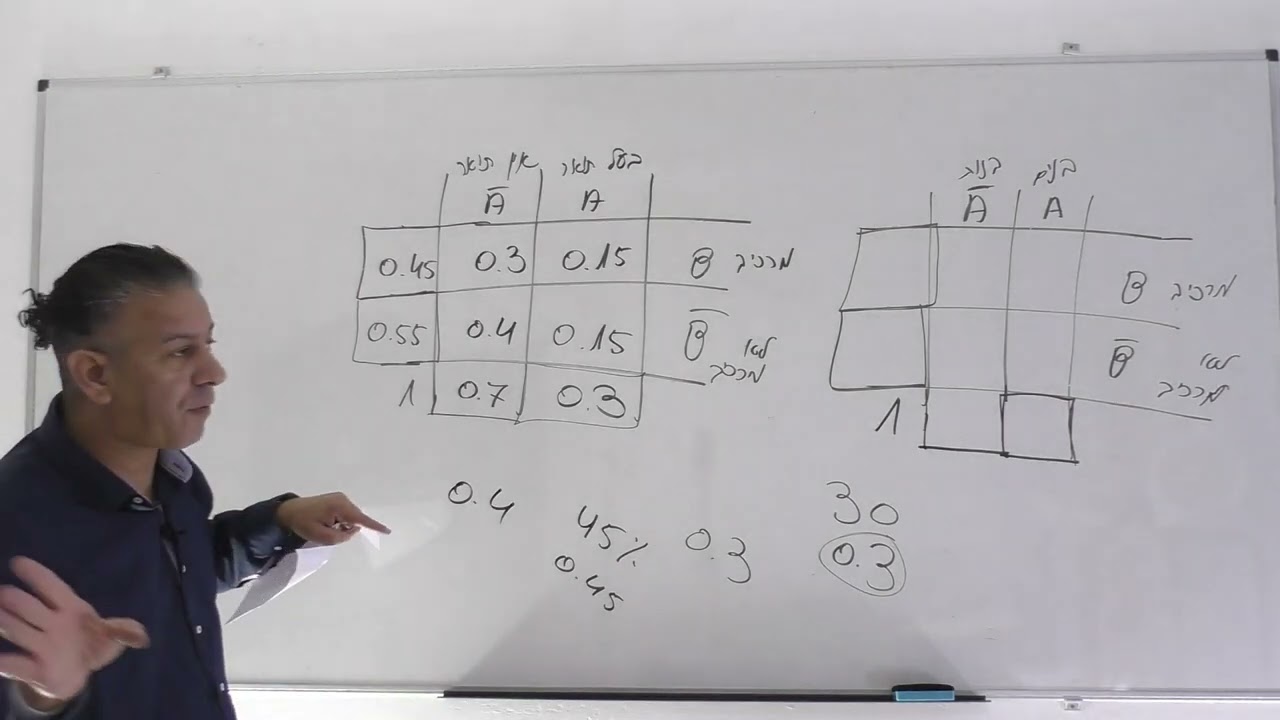 אין תואר בעל תואר
Ā A
0.45 0.3 0.15 B מרכיב
0.55 0.4 0.15 B̄ לא מרכיב
1 0.7 0.3
בנות בנים
Ā A
B מרכיב
B̄ לא מרכיב
1
0.4 45% 0.3 30
0.45 0.3